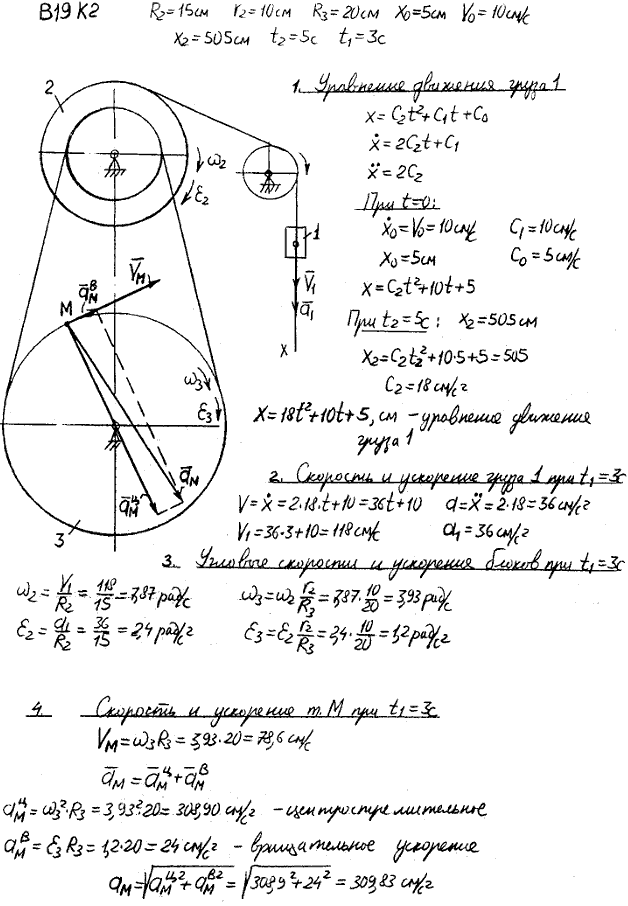 В19 К2 R₂=15см r₂=10см R₃=20см x₀=5см V₀=10см/с
x₂=505см t₂=5с t₁=3с
1. Уравнение движения груза 1
x=C₂t²+C₁t+C₀
ẋ=2C₂t+C₁
ẍ=2C₂
При t=0:
ẋ₀=V₀=10см/с C₁=10см/с
x₀=5см C₀=5см/с
x=C₂t²+10t+5
При t₂=5с: x₂=505см
x₂=C₂t₂²+10·5+5=505
C₂=18см/с²
x=18t²+10t+5, см – уравнение движения
груза 1
2
ω₂
ε₂
1
V̄₁
ā₁
x
V̄м
āмᴮ
М
ω₃
ε₃
āм
āмᶣ
3
2. Скорость и ускорение груза 1 при t₁=3с
V=ẋ=2·18·t+10=36t+10 a=ẍ=2·18=36см/с²
V₁=36·3+10=118см/с a₁=36см/с²
3. Угловые скорости и ускорения блоков при t₁=3с
ω₂=V₁/R₂=118/15=7,87рад/с ω₃=ω₂ r₂/R₃=7,87·10/20=3,93рад/с
ε₂=a₁/R₂=36/15=2,4рад/с² ε₃=ε₂ r₂/R₃=2,4·10/20=1,2рад/с²
4. Скорость и ускорение т.М при t₁=3с
Vм=ω₃R₃=3,93·20=78,6см/с
āм=āмᶣ+āмᴮ
aмᶣ=ω₃²·R₃=3,93²·20=308,90 см/с² – центростремительное
aмᴮ=ε₃R₃=1,2·20=24см/с² – вращательное ускорение
aм=√(aмᶣ²+aмᴮ²)=√(308,9²+24²)=309,83 см/с²